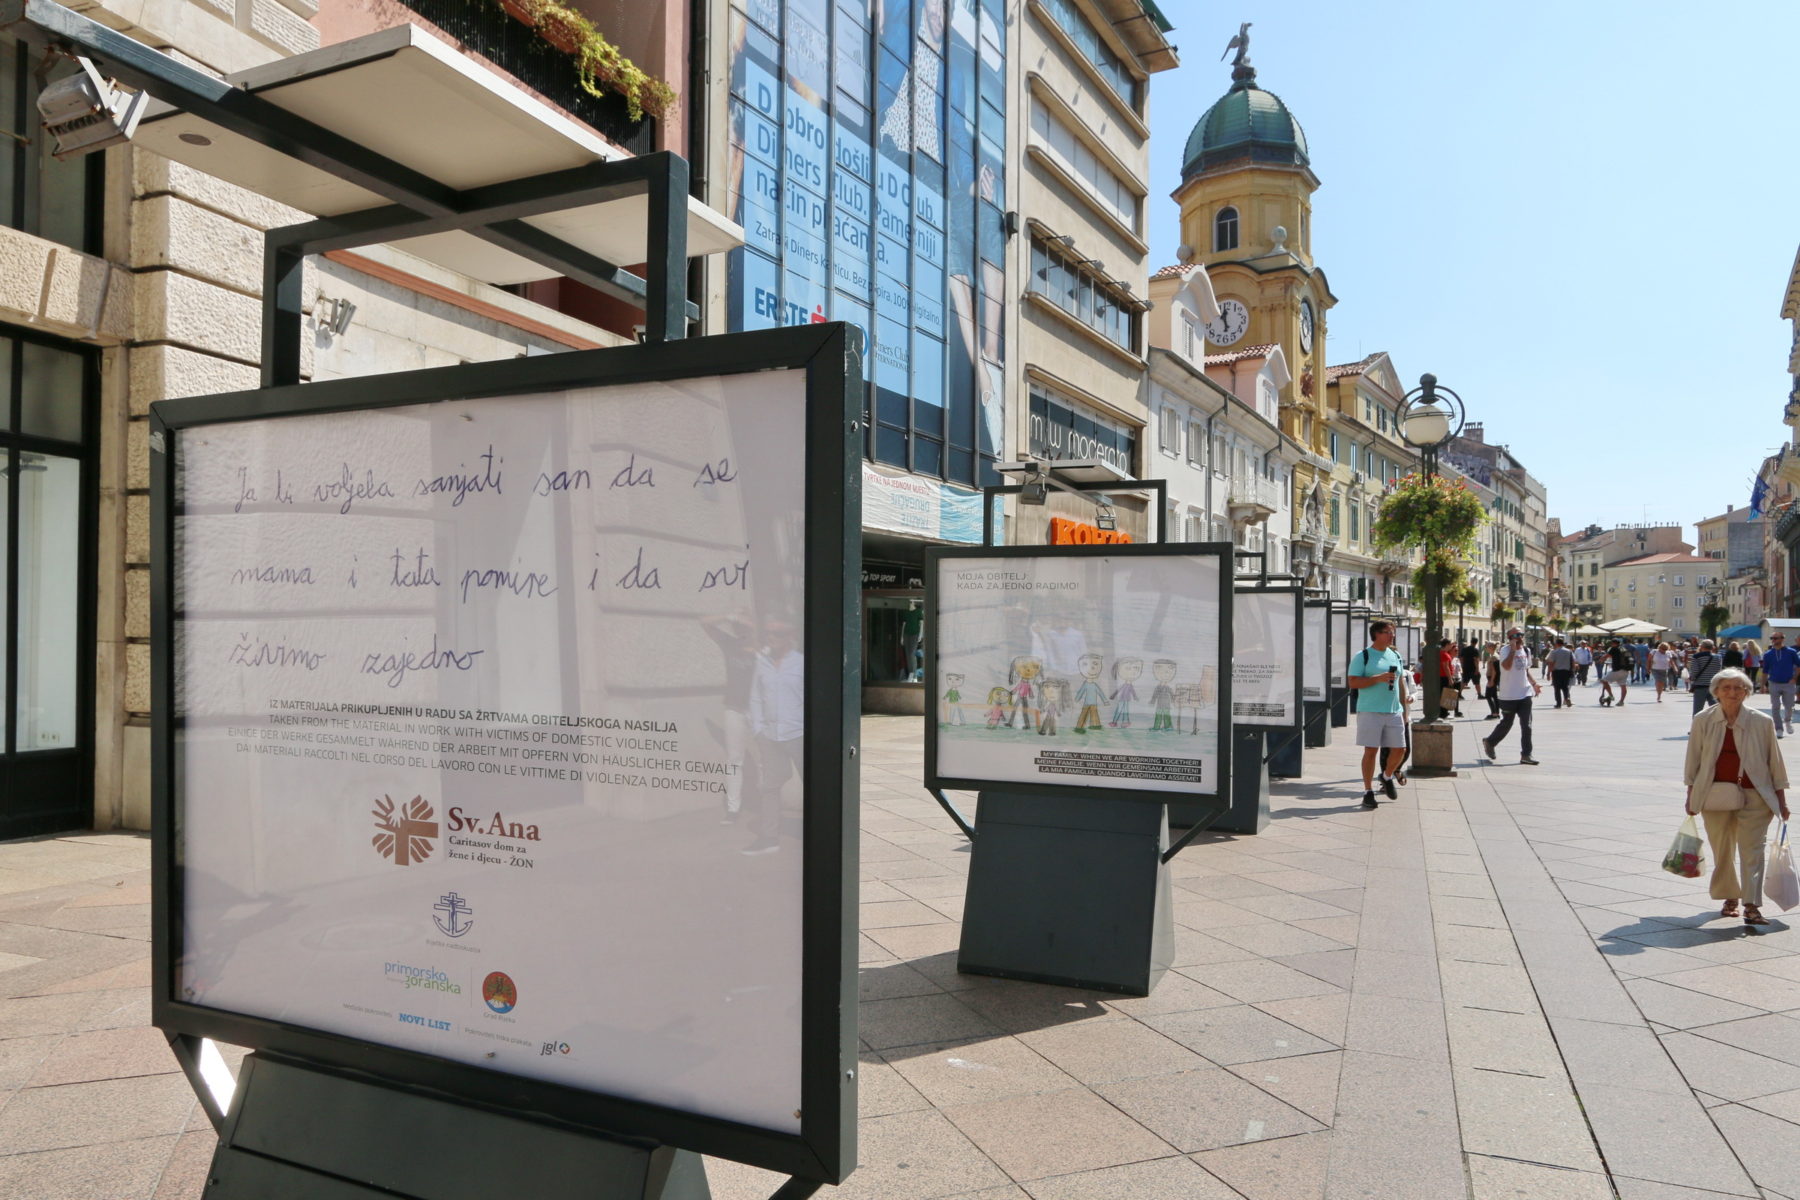 Ja bi voljela sanjati san da se
mama i tata pomire i da svi
živimo zajedno
IZ MATERIJALA PRIKUPLJENIH U RADU SA ŽRTVAMA OBITELJSKOGA NASILJA
TAKEN FROM THE MATERIAL IN WORK WITH VICTIMS OF DOMESTIC VIOLENCE
EINIGE DER WERKE GESAMMELT WÄHREND DER ARBEIT MIT OPFERN VON HÄUSLICHER GEWALT
DAI MATERIALI RACCOLTI NEL CORSO DEL LAVORO CON LE VITTIME DI VIOLENZA DOMESTICA
Sv.Ana
Caritasov dom za
žene i djecu - ŽON
primorsko
goranska
Grad Rijeka
NOVI LIST
Pokrovitelj tiska plakata
jgl
Dobro došli u D Club.
Diners Club. Pametniji
način plaćanja.
Zatraži Diners karticu. Bez papira. 100% digitalno.
ERSTE
Diners Club
INTERNATIONAL
moderato
KONZ
TOP SPORT
MOJA OBITELJ:
KADA ZAJEDNO RADIMO!
MY FAMILY: WHEN WE ARE WORKING TOGETHER!
MEINE FAMILIE: WENN WIR GEMEINSAM ARBEITEN!
LA MIA FAMIGLIA: QUANDO LAVORIAMO ASSIEME!